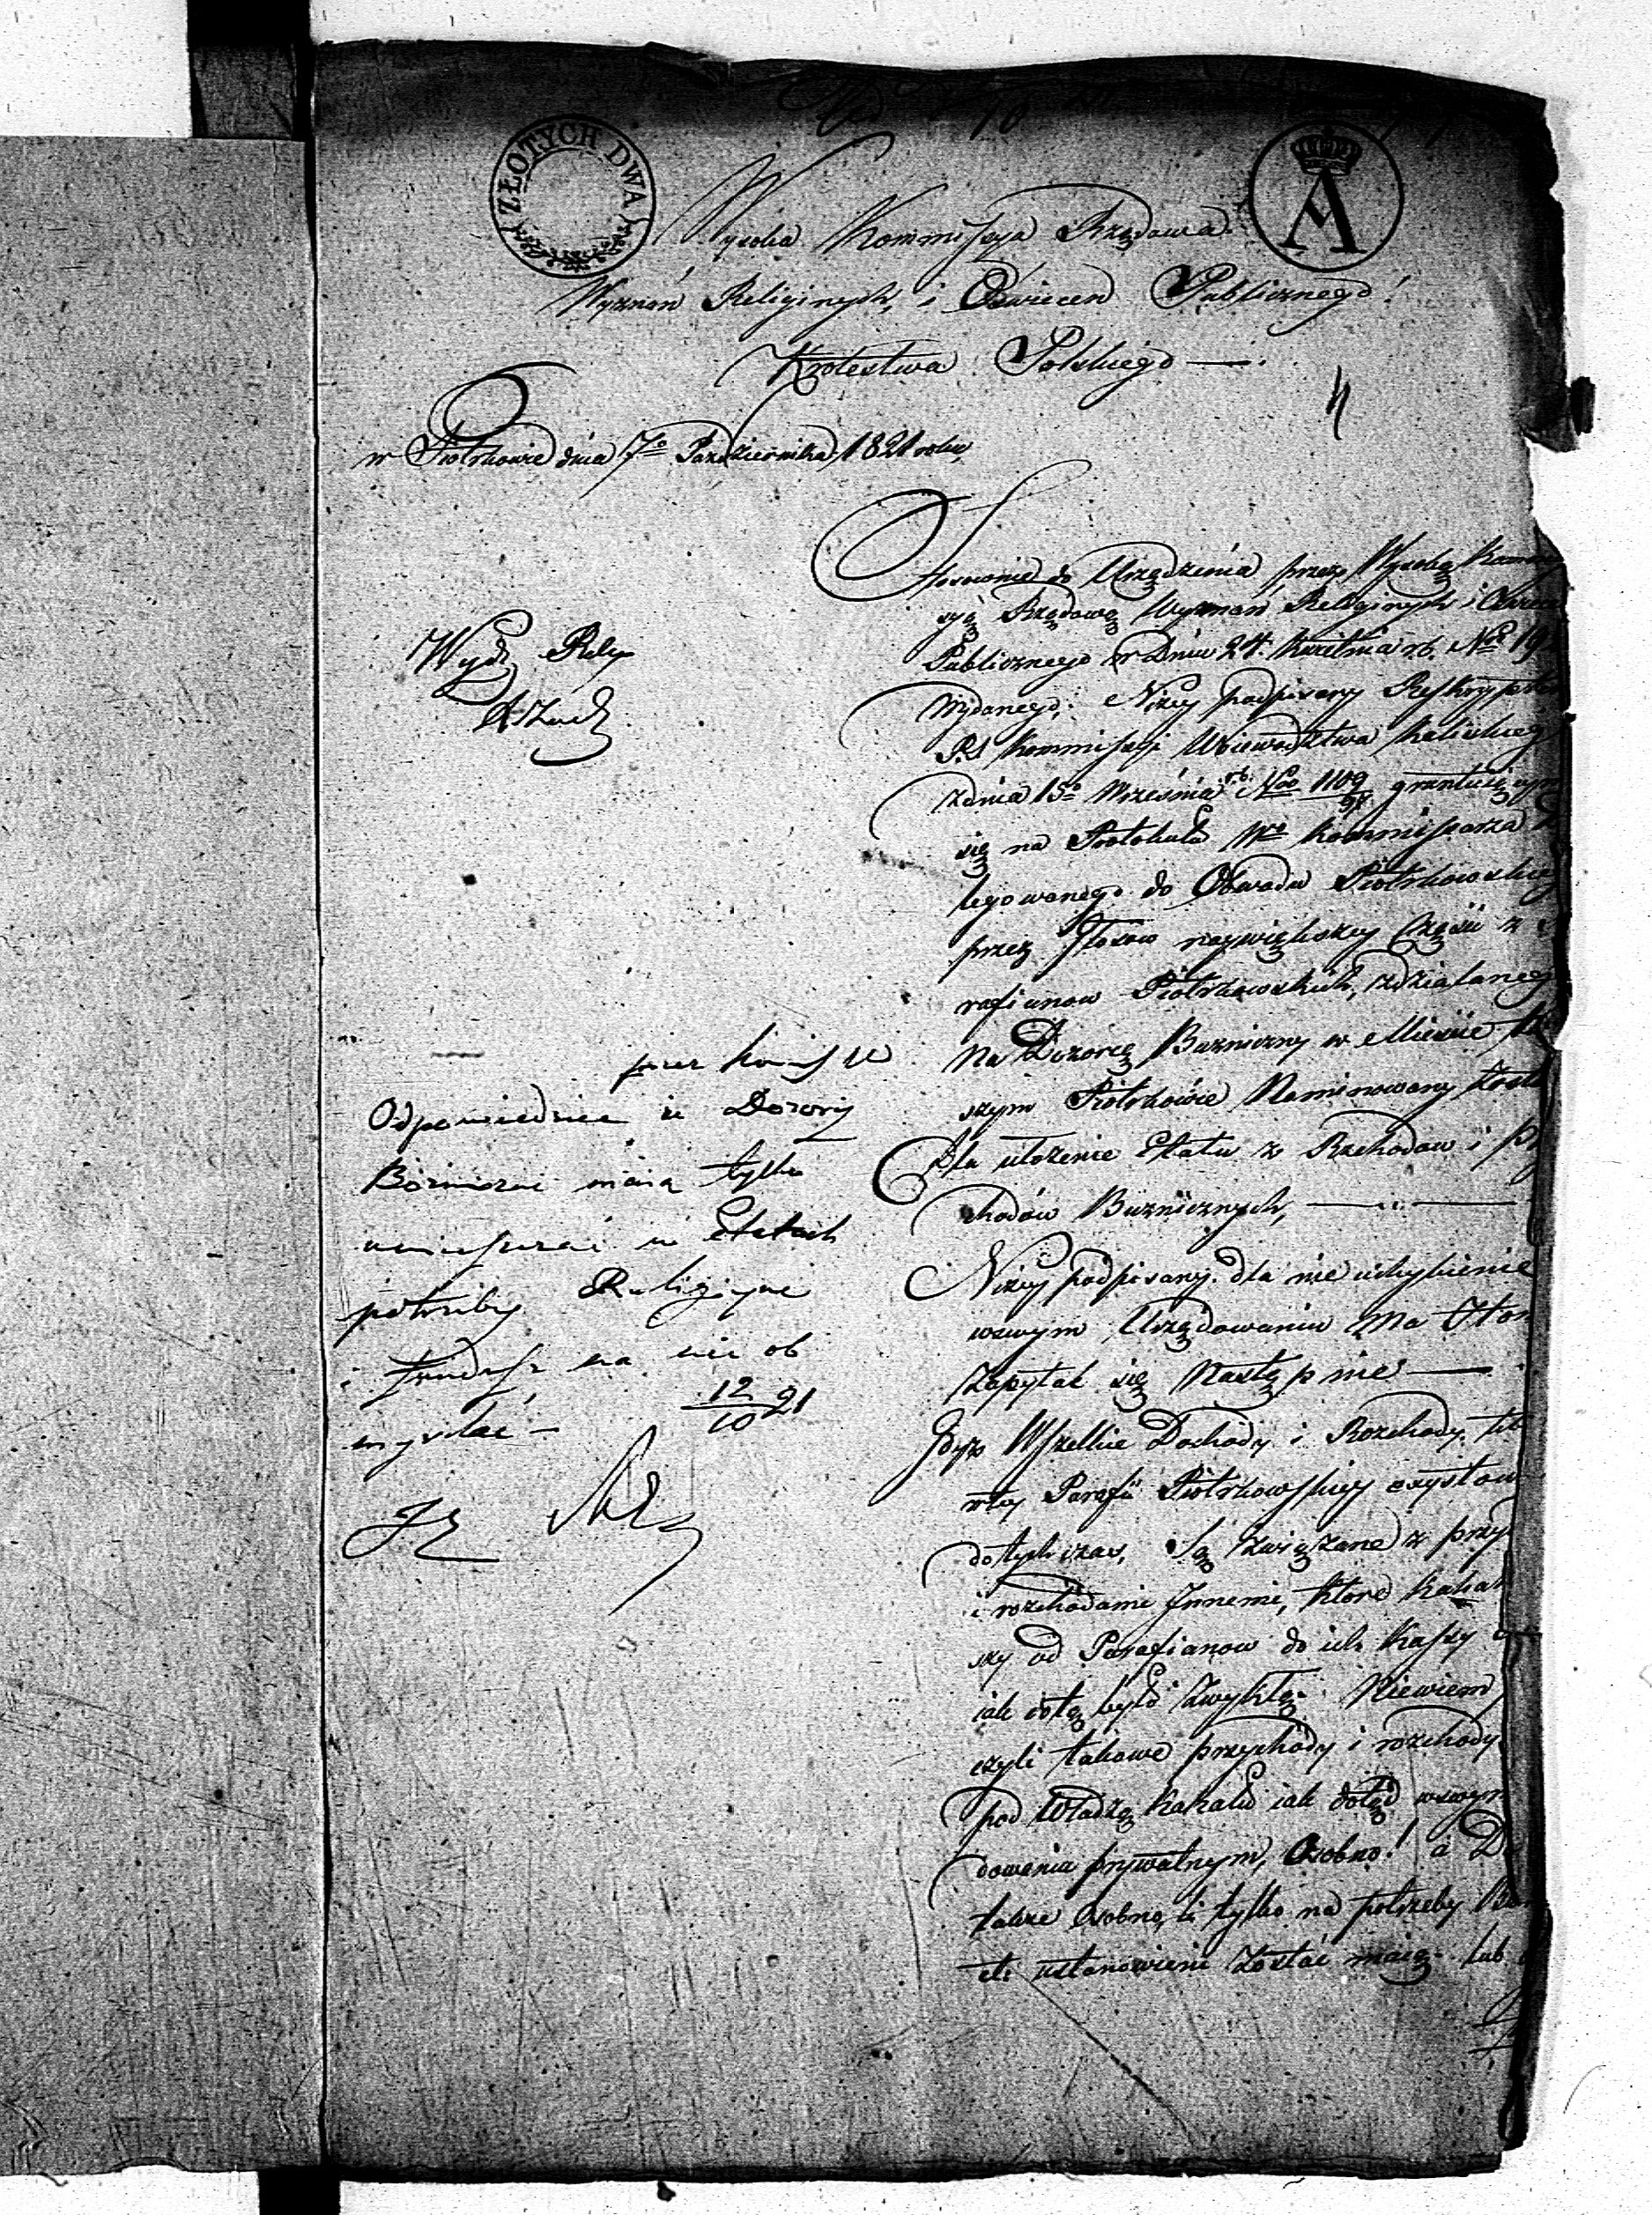 ZŁOTYCH DWA
A
Wysoka Kommissya Rządowa
Wyznań Religinych, i Oświecen Publicznego!
Krolestwa Polskiego —
4
w Piotrkowie dnia 7º Października 1821 roku,
Stosownie do Urządzenia przez Wysoką Kom
syą Rządową Wyznań Religinych i Oświece
Publicznego w Dniu 24. Kwietnia rb. Nº 19
Wydanego; Niżey podpisany Reskryptem
P. Kommissyi Woiewodztwa Kaliskieg
zdnia 15º Września rb. Nro 1109/91 gruntuiącym
się na Protokule Wº Kommissarza D
legowanego do Obwodu Piotrkowskieg
przez Głosow naywiększey Części z
rafianow Piotrkowskich, zdziałaneg
Na Dozorcę Buzniczny w Mieście tu
szym Piotrkowie Nominowany zosta
Dla ułożenie Etatu z Rozchodow i Pr
chodów Buznicznych, —
Niżey podpisany. dla nie uchybienie
wswym Urzędowaniu Ma Hon
Zapytać się Następnie —
Gdyż Wszelkie Dochody i Rozchody tu
wtey Parafii Piotrkowskiey exystow
dotychczas, Są związane z przy
i rozchodami Innemi, ktore Kahal
szy od Parafianow do ich Kassy
iak dotą było zwykłe. Niewiem
czyli takowe przychody i rozchody
pod Władzą Kahału iak dotąd wswym
dowaniu prywatnym, Osobno! a D
także Osobno, li tylko na potrzeby Bo
eti ustanowieni zostać maią. lub
Wydz Rely
przez Komss W
Odpowiedziec iż Dozory
Bożniczne maią tylko
umieszczać w Etatach
potrzeby Religiyne
i fundusz na nie ob
myslać —
12/10 21